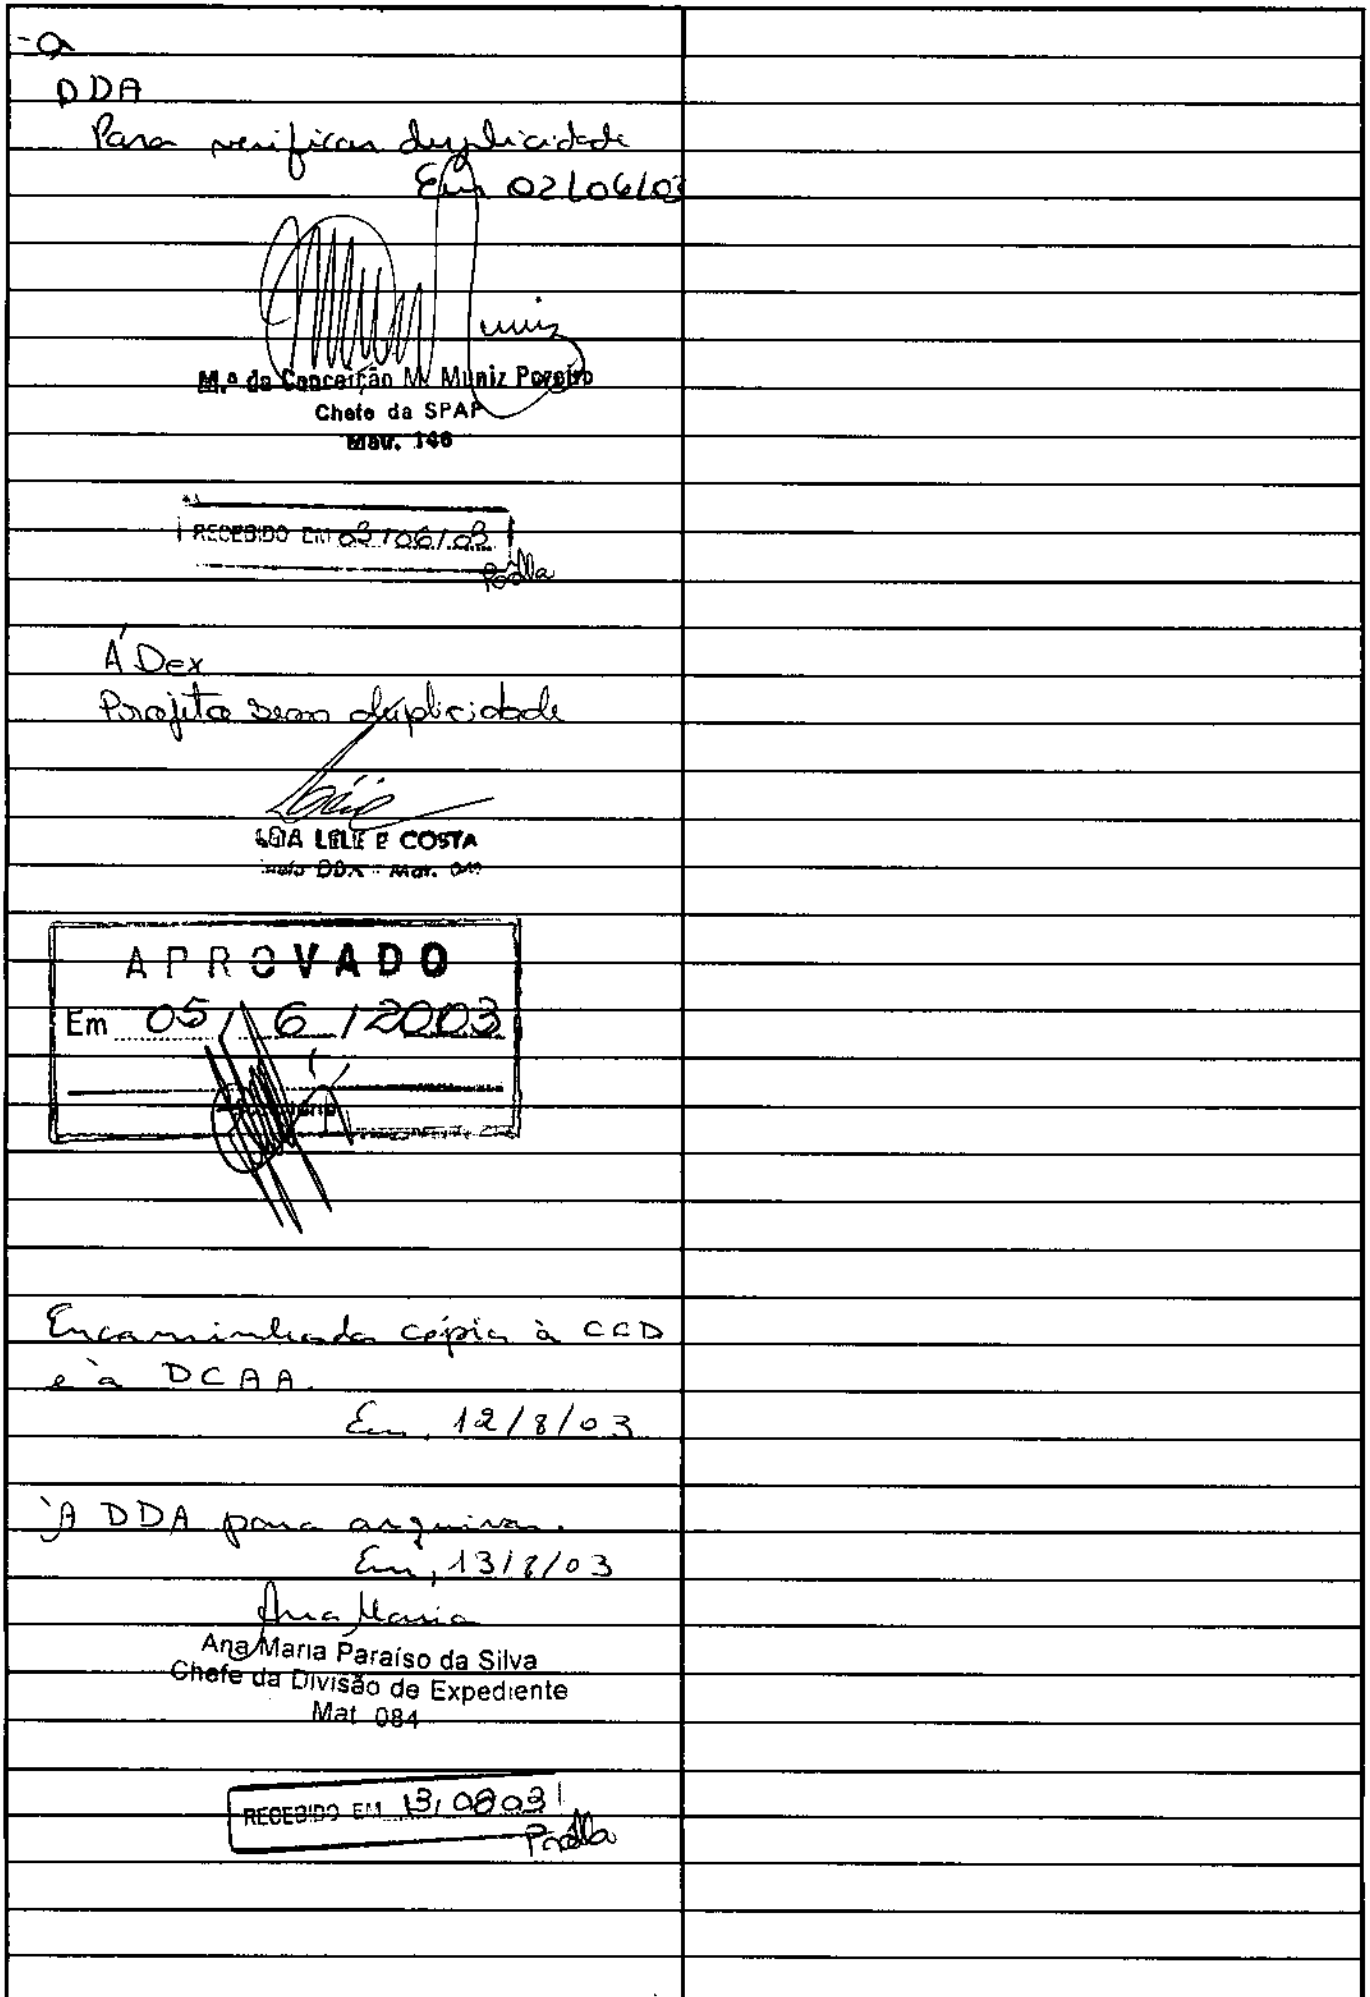 À
DDA
Para verificar duplicidade
Em 02/06/03
Muniz
M.ª da Conceição M. Muniz Pereira
Chefe da SPAP
Mat. 146
RECEBIDO EM 03/06/03
À Dex
Projeto sem duplicidade
LELE E COSTA
Mat.
APROVADO
Em 05/6/2003
Encaminhada cópia à CCD
e à DCAA.
Em, 12/8/03
À DDA para arquivar.
Em, 13/8/03
Ana Maria
Ana Maria Paraíso da Silva
Chefe da Divisão de Expediente
Mat 084
RECEBIDO EM 13/08/03